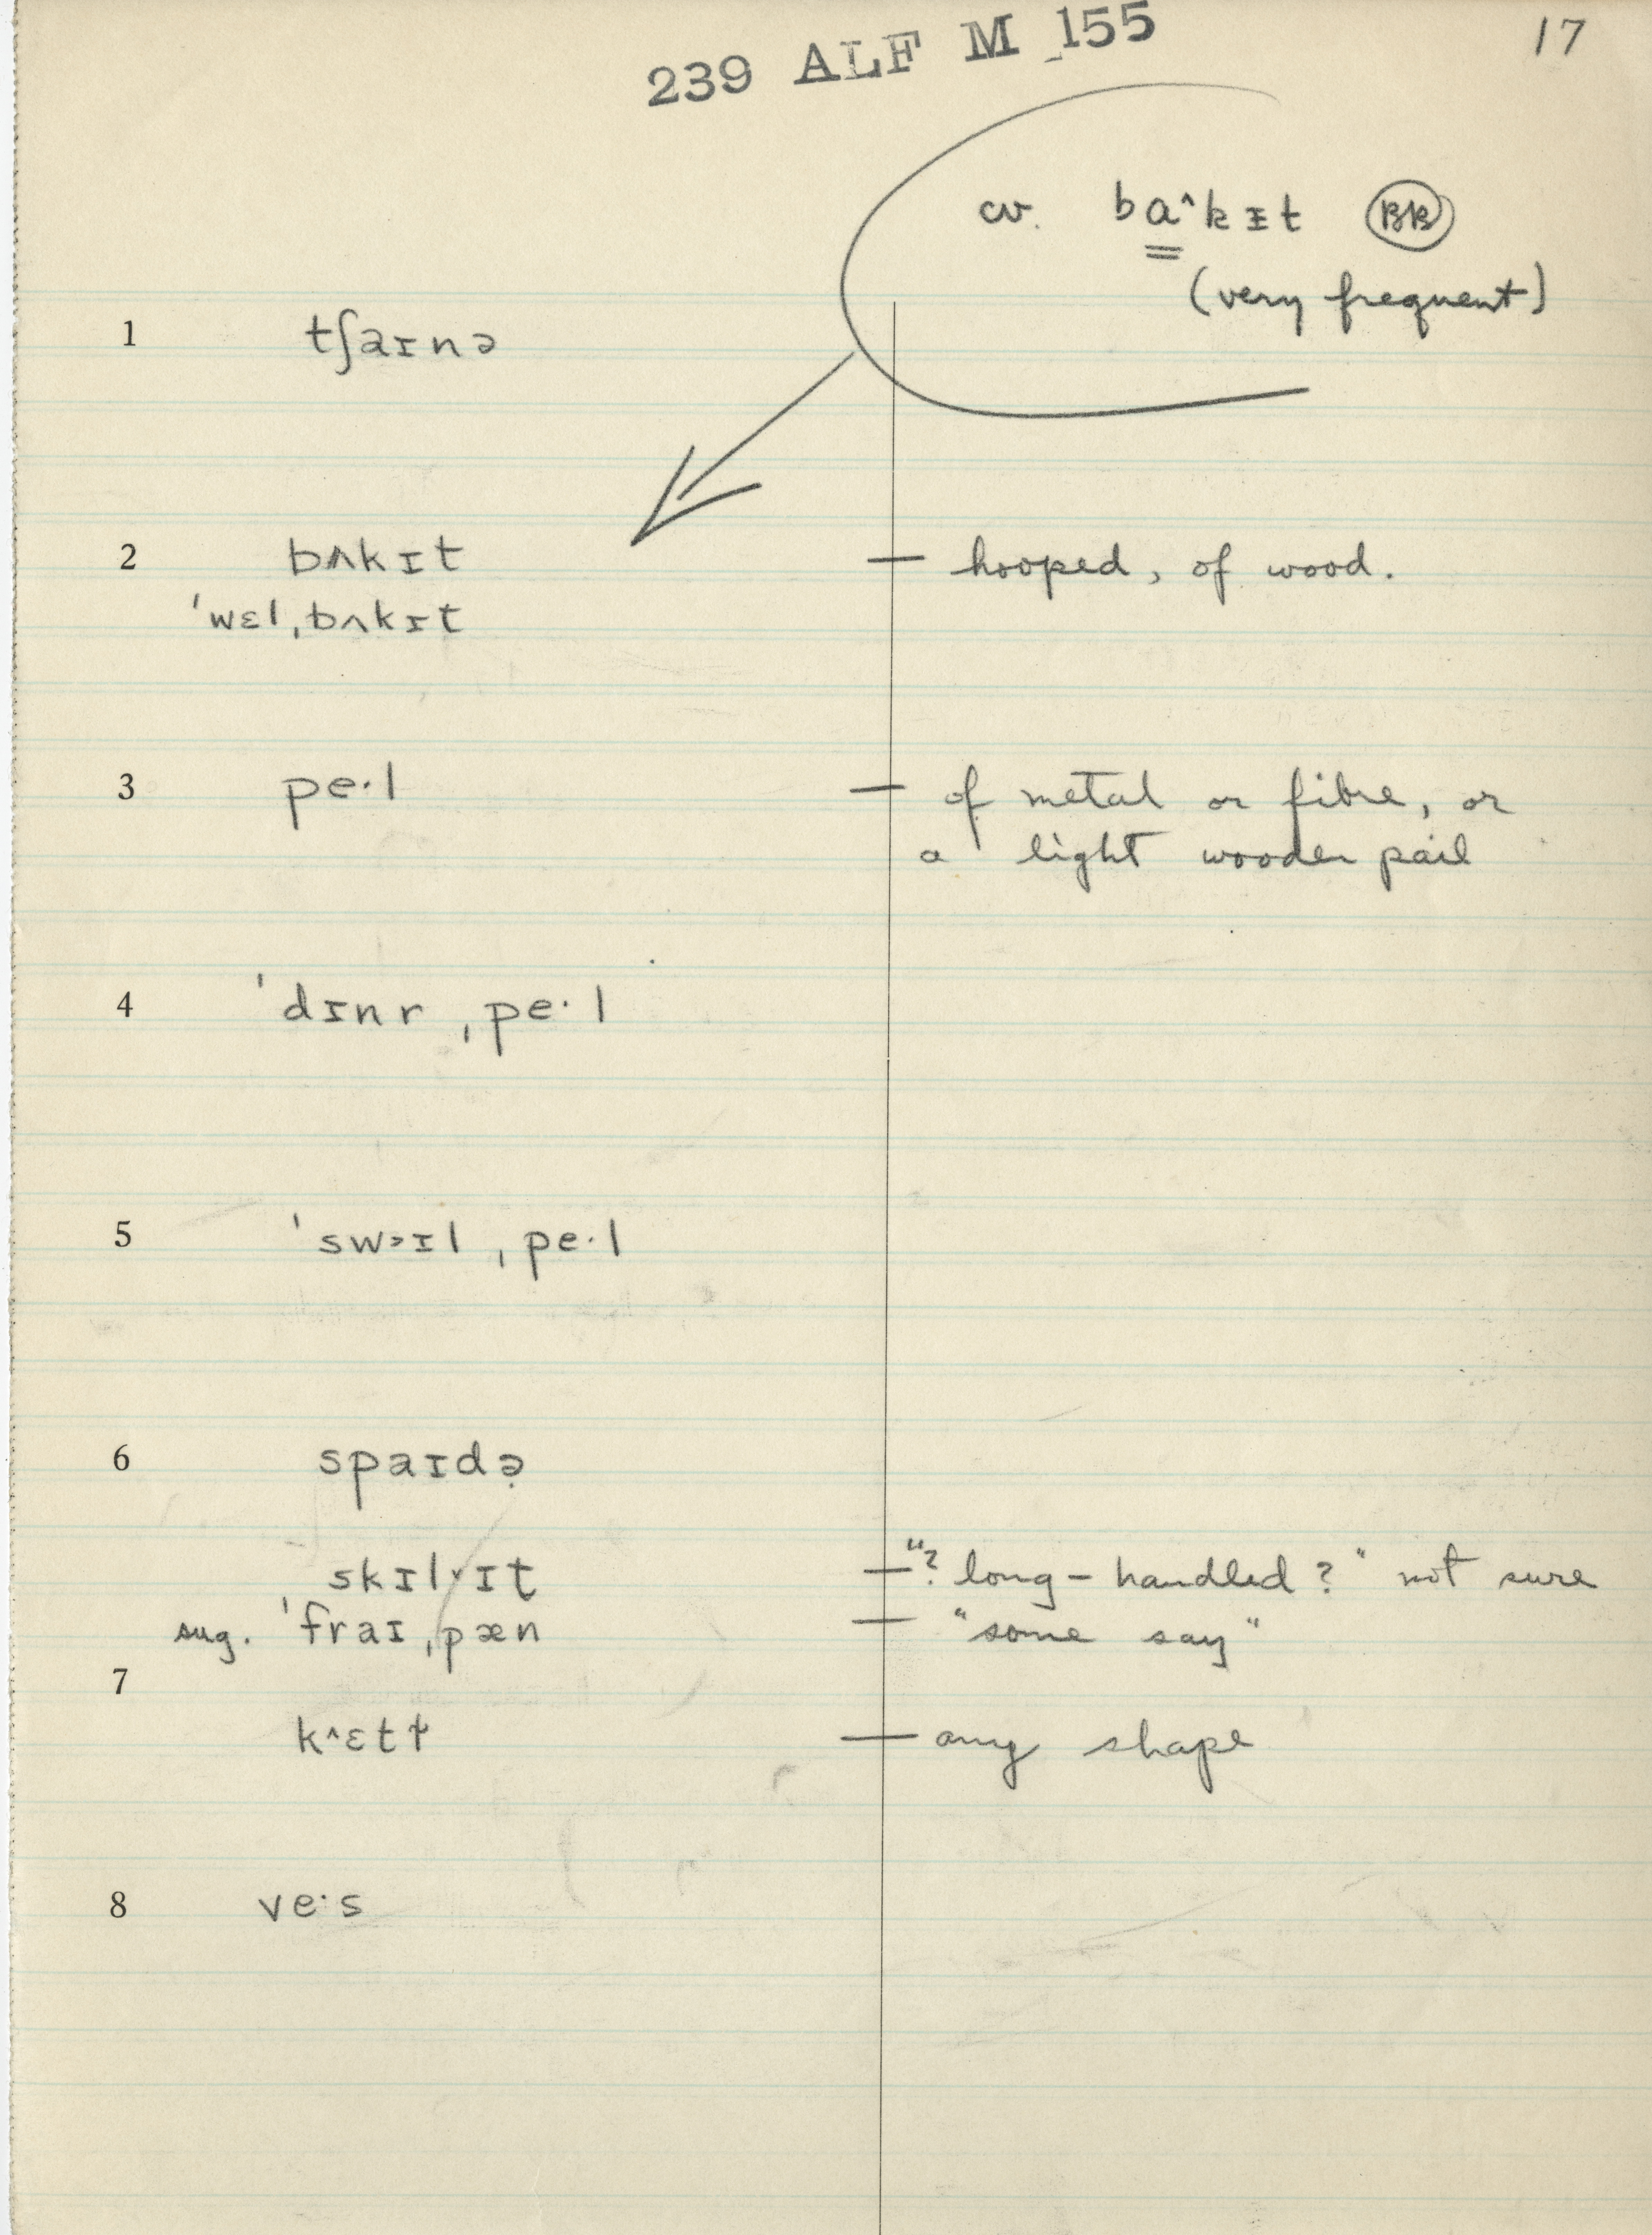 239 ALF M 155
17
cv. ba^kɪt BK
(very frequent)
1 tʃaɪnə
2 bʌkɪt — hooped, of wood.
ˈwɛlˌbʌkɪt
3 pe·l — of metal or fibre, or
a light wooden pail
4 ˈdɪnrˌpe·l
5 ˈswɔɪlˌpe·l
6 spaɪdə̣
skɪlvɪt — "? long-handled?" not sure
sug. ˈfraɪˌpæn — "some say"
7
k^ɛtɫ — any shape
8 ve·s